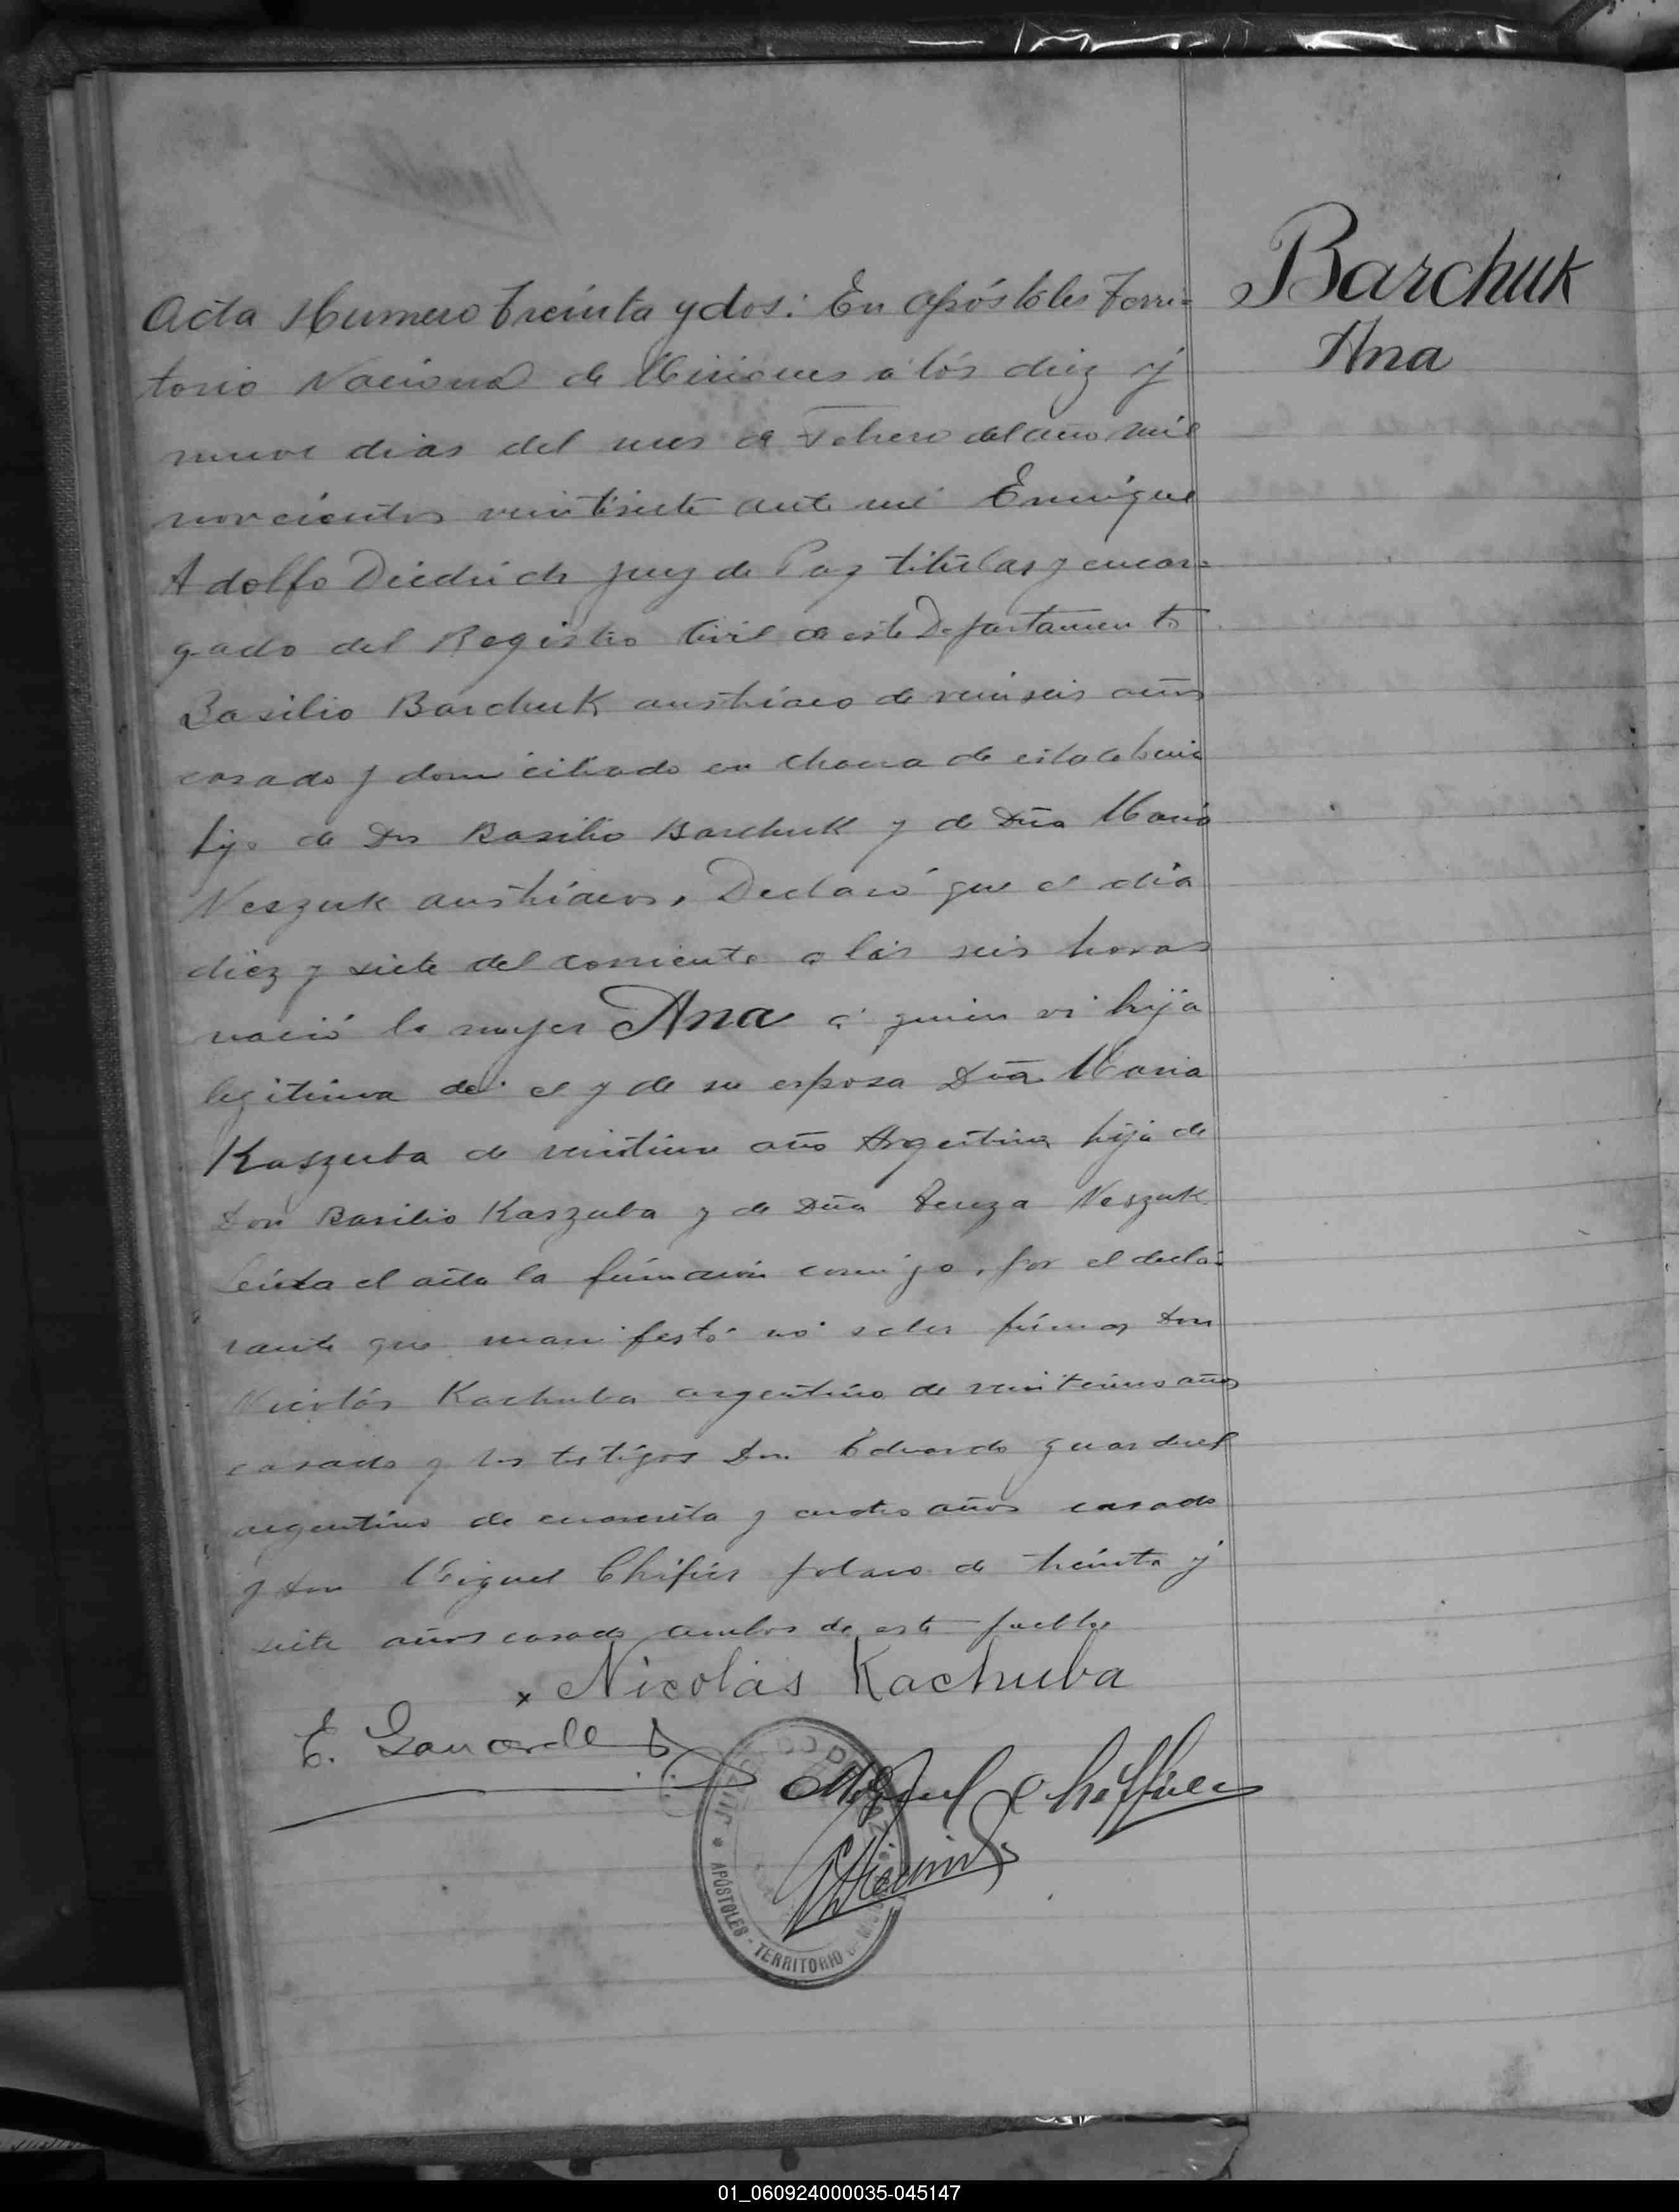 Barchuk
Ana
Acta Numero Treinta y dos: En Apóstoles Terri-
torio Nacional de Misiones a los diez y
nueve dias del mes de Febrero del año mil
novecientos veintisiete ante mi Enrique
Adolfo Diedrich Juez de Paz titular y encar-
gado del Registro Civil de este Departamento
Basilio Barchuk austriaco de veinseis años
casado y domiciliado en chacra de esta colonia
hijo de Don Basilio Barchuk y de Dña Maria
Neszuk austriacos, Declaró que el dia
diez y siete del corriente a las seis horas
nació la mujer Ana a quien vi hija
legitima de el y de su esposa Dña Maria
Kaszuba de veintiun año Argentina hija de
Don Basilio Kaszuba y de Dña Tereza Neszuk
Leida el acta la firmaron conmigo, por el decla-
rante que manifestó no saber firmar Don
Nicolás Kachuba argentino de años
casado y los testigos Don Eduardo Guarduel
argentino de cuarenta y cuatro años casado
y Don Miguel Chifier polaco de treinta y
siete años casado ambos de este pueblo
x Nicolás Kachuba
E.
Miguel
JUZGADO DE PAZ
APÓSTOLES - TERRITORIO DE
01_060924000035-045147